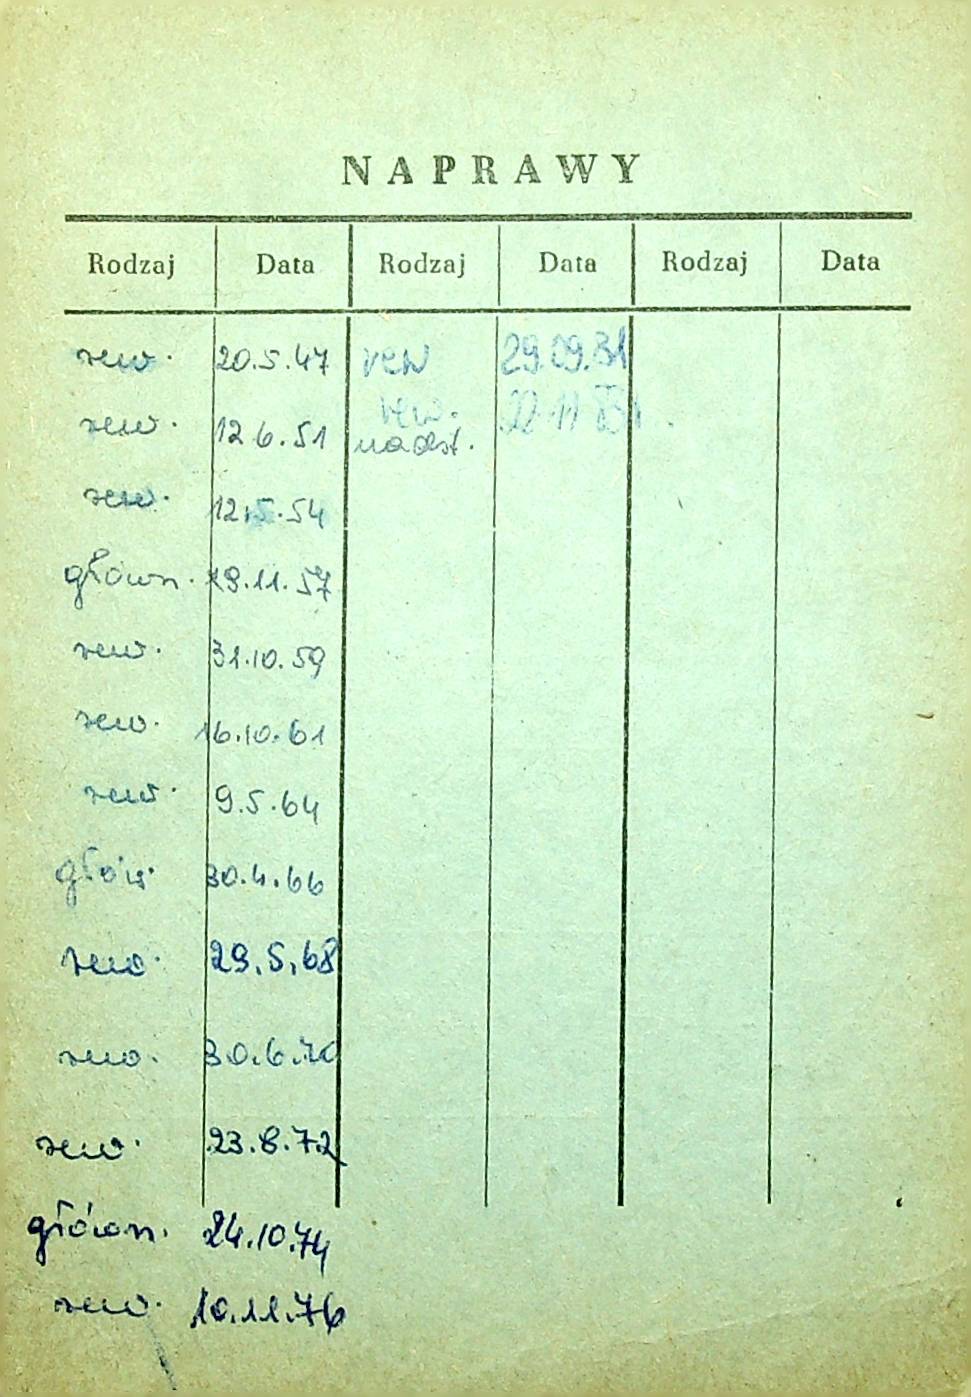 NAPRAWY
Rodzaj Data Rodzaj Data Rodzaj Data
rew. 20.5.47 rew 29.09.81
rew. 12 6.51 rew.
nadst.
rew. 12.5.54
główn. 29.11.57
rew. 31.10.59
rew. 16.10.61
rew. 9.5.64
głów. 30.4.66
rew. 29.5.68
rew. 30.6.70
rew. 23.8.72
główn. 24.10.74
rew. 10.11.76